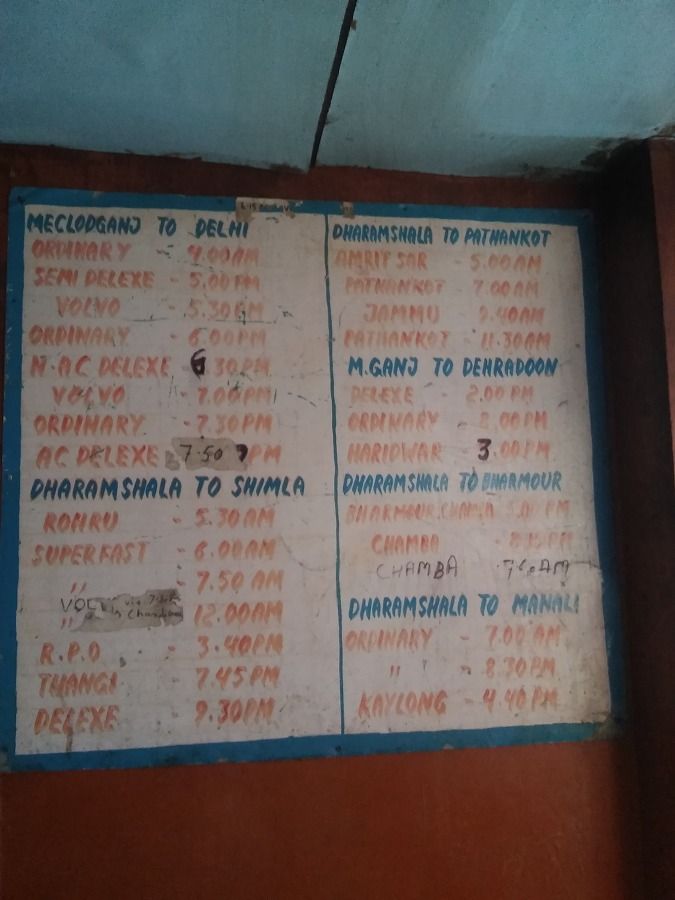 MECLODGANJ TO DELHI
ORDINARY - 4.00AM
SEMI DELEXE - 5.00PM
VOLVO - 5.30PM
ORDINARY - 6.00PM
N.AC DELEXE 6 30PM
VOLVO - 7.00PM
ORDINARY - 7.30PM
AC DELEXE 7.50 PM
DHARAMSHALA TO SHIMLA
ROHRU - 5.30AM
SUPERFAST - 6.00AM
" - 7.50 AM
" 12.00AM
R.P.O - 3.40PM
THANGI - 7.45PM
DELEXE 9.30PM
DHARAMSHALA TO PATHANKOT
AMRITSAR - 5.00AM
PATHANKOT 7.00AM
JAMMU - 9.40AM
PATHANKOT - 11.30AM
M.GANJ TO DEHRADOON
DELEXE - 2.00 PM
ORDINARY - 8.00PM
HARIDWAR - 3.00PM
DHARAMSHALA TO BHARMOUR
BHARMOUR.CHAMBA PM
CHAMBA - PM
CHAMBA AM
DHARAMSHALA TO MANALI
ORDINARY - 7.00 AM
" - 8.30PM
KAYLONG - 4.40PM